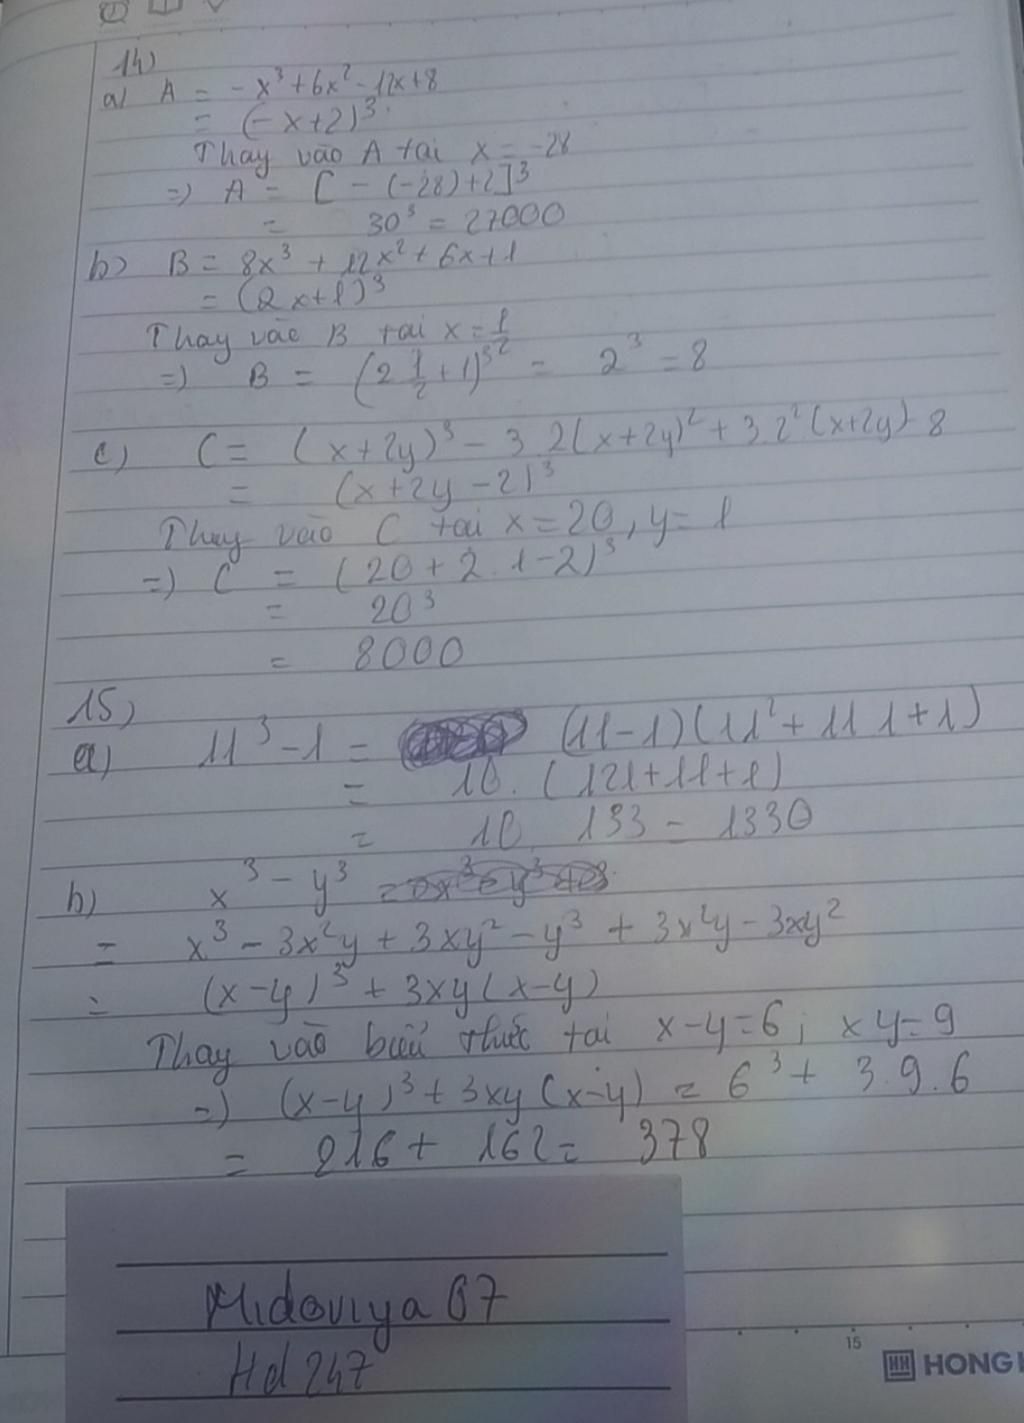 14)
a) A = -x³ + 6x² - 12x + 8
= (-x+2)³
Thay vào A tại x = -28
=) A = [-(-28)+2]³
= 30³ = 27000
b) B = 8x³ + 12x² + 6x + 1
= (2x+1)³
Thay vào B tại x = 1/2
=) B = (2 1/2 + 1)³ = 2³ = 8
c) C = (x+2y)³ - 3.2(x+2y)² + 3.2²(x+2y) - 8
= (x+2y-2)³
Thay vào C tại x = 20, y = 1
=) C = (20 + 2.1-2)³
= 20³
= 8000
15)
a) 11³ - 1 = (11-1)(11² + 11 1 + 1)
= 10. (121+11+1)
= 10 133 = 1330
b) x³ - y³
= x³ - 3x²y + 3xy² - y³ + 3x²y - 3xy²
= (x-y)³ + 3xy(x-y)
Thay vào biểu thức tại x-y=6; xy=9
=) (x-y)³ + 3xy(x-y) = 6³ + 3.9.6
= 216 + 162 = 378
Midoviya 07
Hd 247
15
HH HONG